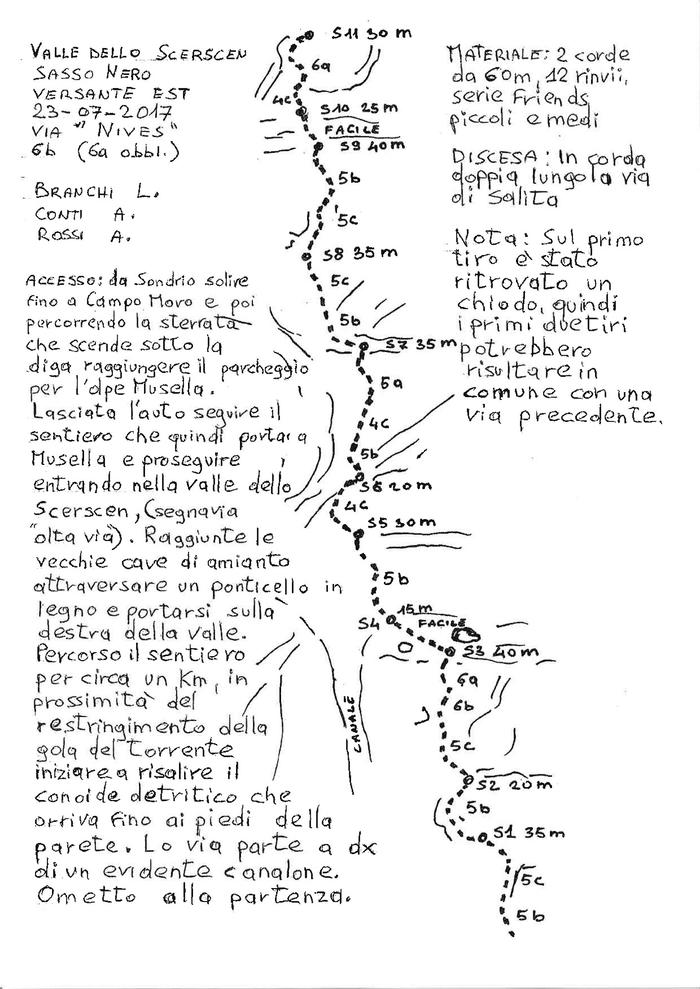 VALLE DELLO SCERSCEN
SASSO NERO
VERSANTE EST
23-07-2017
VIA "NIVES"
6b (6a obbl.)
BRANCHI L.
CONTI A.
ROSSI A.
ACCESSO: da Sondrio salire
fino a Campo Moro e poi
percorrendo la sterrata
che scende sotto la
diga raggiungere il parcheggio
per l'alpe Musella.
Lasciata l'auto seguire il
sentiero che quindi porta a
Musella e proseguire
entrando nella valle dello
Scerscen, (segnavia
"alta via). Raggiunte le
vecchie cave di amianto
attraversare un ponticello in
legno e portarsi sulla
destra della valle.
Percorso il sentiero
per circa un Km, in
prossimità del
restringimento della
gola del Torrente
iniziare a risalire il
conoide detritico che
arriva fino ai piedi della
parete. La via parte a dx
di un evidente canalone.
Ometto alla partenza.
S11 30 m
6a
4c
S10 25 m
FACILE
S9 40 m
5b
5c
S8 35 m
5c
5b
S7 35 m
5a
4c
5b
S6 20 m
4c
S5 30 m
5b
15 m
S4
FACILE
S3 40 m
6a
6b
5c
CANALE
S2 20 m
5b
S1 35 m
5c
5b
MATERIALE: 2 corde
da 60m, 12 rinvii,
serie Friends
piccoli e medi
DISCESA: In corda
doppia lungo la via
di salita
Nota: Sul primo
tiro è stato
ritrovato un
chiodo, quindi
i primi due tiri
potrebbero
risultare in
comune con una
via precedente.